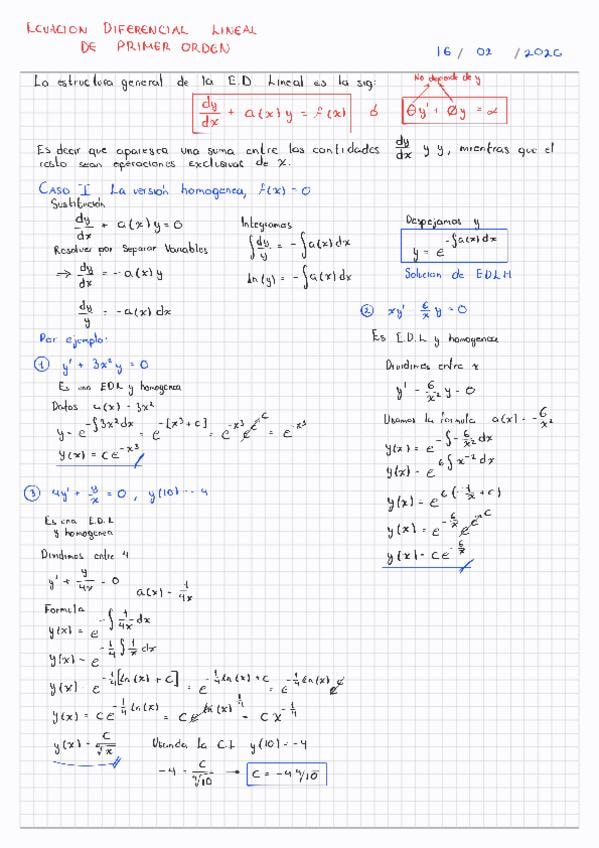 ECUACION DIFERENCIAL LINEAL
DE PRIMER ORDEN
16 / 02 / 2026
La estructura general de la E.D. Lineal es la sig:
No depende de y
dy/dx + a(x) y = f(x) ó θy' + Øy = α
Es decir que aparezca una suma entre las cantidades dy/dx y y, mientras que el
resto sean operaciones exclusivas de x.
CASO I La versión homogenea, f(x) = 0
Sustitución
dy/dx + a(x) y = 0
Resolver por Separar Variables
⇒ dy/dx = -a(x) y
dy/y = -a(x) dx
Integramos
∫ dy/y = -∫ a(x) dx
ln(y) = -∫ a(x) dx
Despejamos y
y = e^{-∫a(x)dx}
Solucion de EDLH
Por ejemplo:
① y' + 3x² y = 0
Es una EDL y homogenea
Datos a(x) = 3x²
y = e^{-∫3x²dx} = e^{-[x³+c]} = e^{-x³} e^{-c} = e^{-x³}
y(x) = c e^{-x³}
② xy' - 6/x y = 0
Es E.D.L y homogenea
Dividimos entre x
y' - 6/x² y = 0
Usamos la formula a(x) = -6/x²
y(x) = e^{-∫-6/x² dx}
y(x) = e^{6∫x⁻² dx}
y(x) = e^{6(-1/x + c)}
y(x) = e^{-6/x} e^{6c}
y(x) = c e^{-6/x}
③ 4y' + y/x = 0, y(10) = -4
Es una E.D.L
y homogenea
Dividimos entre 4
y' + y/4x = 0
a(x) = 1/4x
Formula
y(x) = e^{-∫ 1/4x dx}
y(x) = e^{-1/4 ∫ 1/x dx}
y(x) e^{-1/4[ln(x) + c]} = e^{-1/4 ln(x) + c} = e^{-1/4 ln(x)} c
y(x) = c e^{-1/4 ln(x)} = c e^{ln(x)^{-1/4}} = c x^{-1/4}
y(x) = c/⁴√x
Usando la C.I. y(10) = -4
-4 = c/⁴√10 → c = -4 ⁴√10